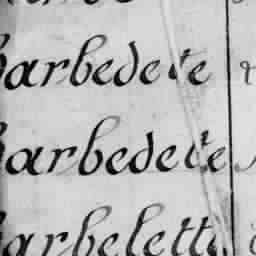 Barbedete
Barbedete
Barbelette